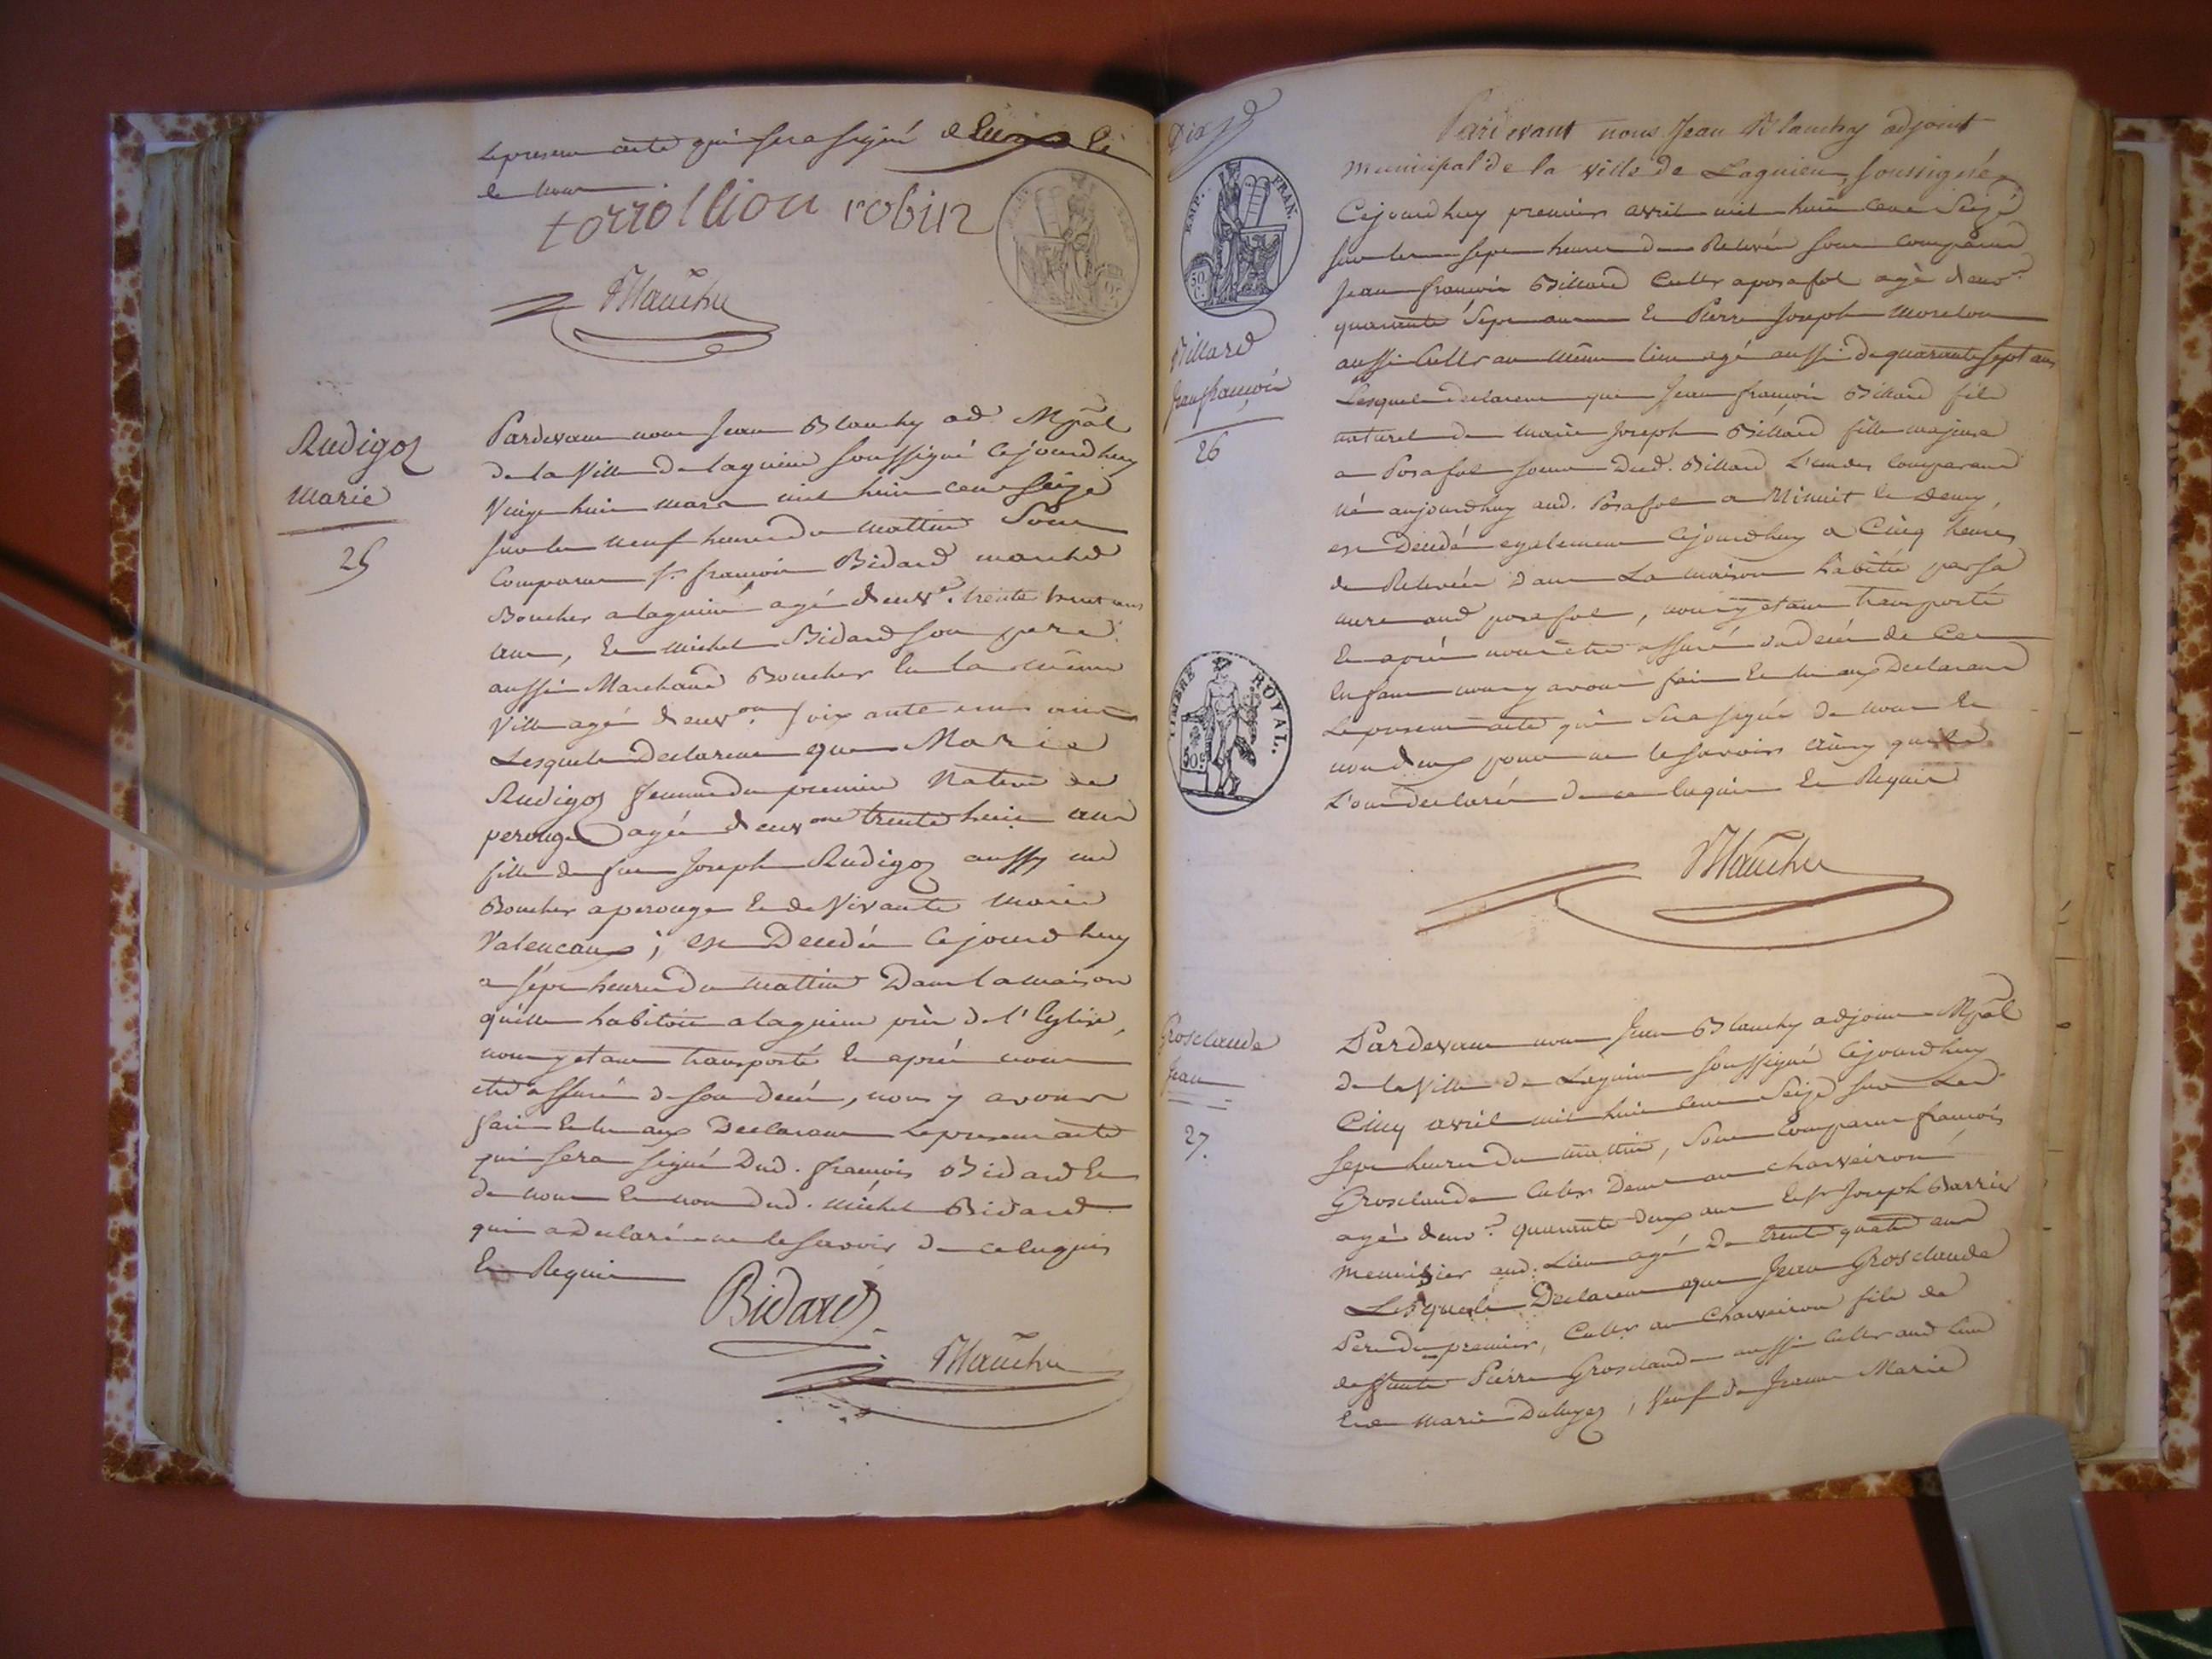 le present acte qui sera signé d'Eux Et
de nous
torrollion robin
Blanchy
Rudigoz
Marie
25
Pardevant nous Jean Blanchy adt. Mpãl
de la Ville de lagnieu soussigné Cejourdhuy
Vingt huit mars mil huit cent Seize
sur les neuf heures du mattin Sont
Comparus Sr. francois Bidard marchd
Boucher a lagnieu agé d'envn. trente huit ans
ans, Et michel Bidard son pere
aussi Marchand Boucher En la même
Ville agé d'environ. soixante un ans
Lesquels Declarent que Marie
Rudigoz femme du premier Native de
perouge agée d'environ trente huit ans
fille de feu Joseph Rudigoz aussy md
Boucher a perouge Et de Vivante Marie
Valencaux; est Decedée Cejourdhuy
a sépt heures du mattin Dans la maison
qu'elle habitoit a lagnieu près de l'Eglise,
nous y etant transporté Et après nous
etre assuré de son decés, nous y avons
fait Et lu aux Declarans le present acte
qui sera signé Dud. francois Bidard Et
de nous Et non dud. Michel Bidard
qui a declaré ne le savoir de ce Enquis
Et Requis
Bidard
Blanchy
Dix
EMP. FRAN.
50 C.
Billard
Jean françois
26
TIMBRE ROYAL.
50c
Pardevant nous Jean Blanchy adjoint
municipal de la ville de Lagnieu, soussigné
Cejourdhuy premier avril mil huit cent Seize
sur les sept heures de Relevée sont comparus
Jean francois Billard Cultr a posafol agé d'envn.
quarante Sept ans Et Pierre Joseph Morelon
aussi Cultr au même lieu agé aussi de quarante sept ans
Lesquels declarent que Jean françois Billard fils
naturel de Marie Joseph Billard fille majeure
a Posafol soeur Dud. Billard L'un des Comparans
né aujourdhuy aud. Posafol a Minuit Et demy,
est Decedé egalement Cejourdhuy a Cinq heures
de Relevée dans La maison habitée par sa
mere aud posafol, nous y etant transporté
Et après nous etre assuré du decés de Cet
Enfant nous y avons fait Et lu aux Declarans
Le present acte qui Sera signé de nous Et
non d'eux pour ne le savoir ainsy qu'ils
L'ont declaré de ce Enquis Et Requis
Blanchy
Grosclaude
Jean
27.
Pardevant nous Jean Blanchy adjoint Mpãl
de la Ville de Lagnieu soussigné Cejourdhuy
Cinq avril mil huit cent Seize sur Les
sept heures du mattin, Sont Comparus françois
Grosclaude Cultr Demt au charveiron
agé d'envn. quarante deux ans Et Sr Joseph Barrier
Menuisier aud. Lieu agé De trente quatre ans
Lesquels Declarent que Jean Grosclaude
Pere du premier, Cultr au Charveiron fils de
deffunte Pierre Grosclaude aussi Cultr aud lieu
Et de Marie Dulluyer, Veuf de Jeanne Marie